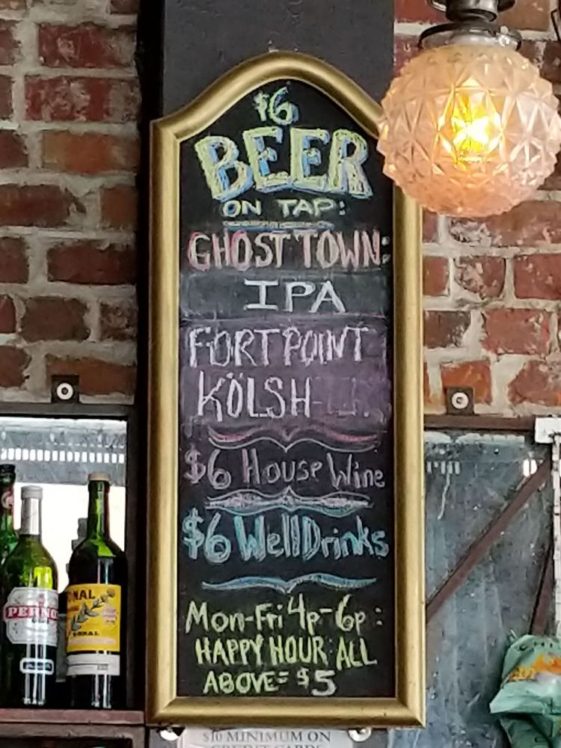 $6
BEER
ON TAP:
GHOST TOWN:
IPA
FORT POINT
KÖLSH
$6 House Wine
$6 Well Drinks
Mon-Fri 4p-6p:
HAPPY HOUR: ALL
ABOVE = $5
PERNO
NAL
$10 MINIMUM ON
CREDIT CARDS